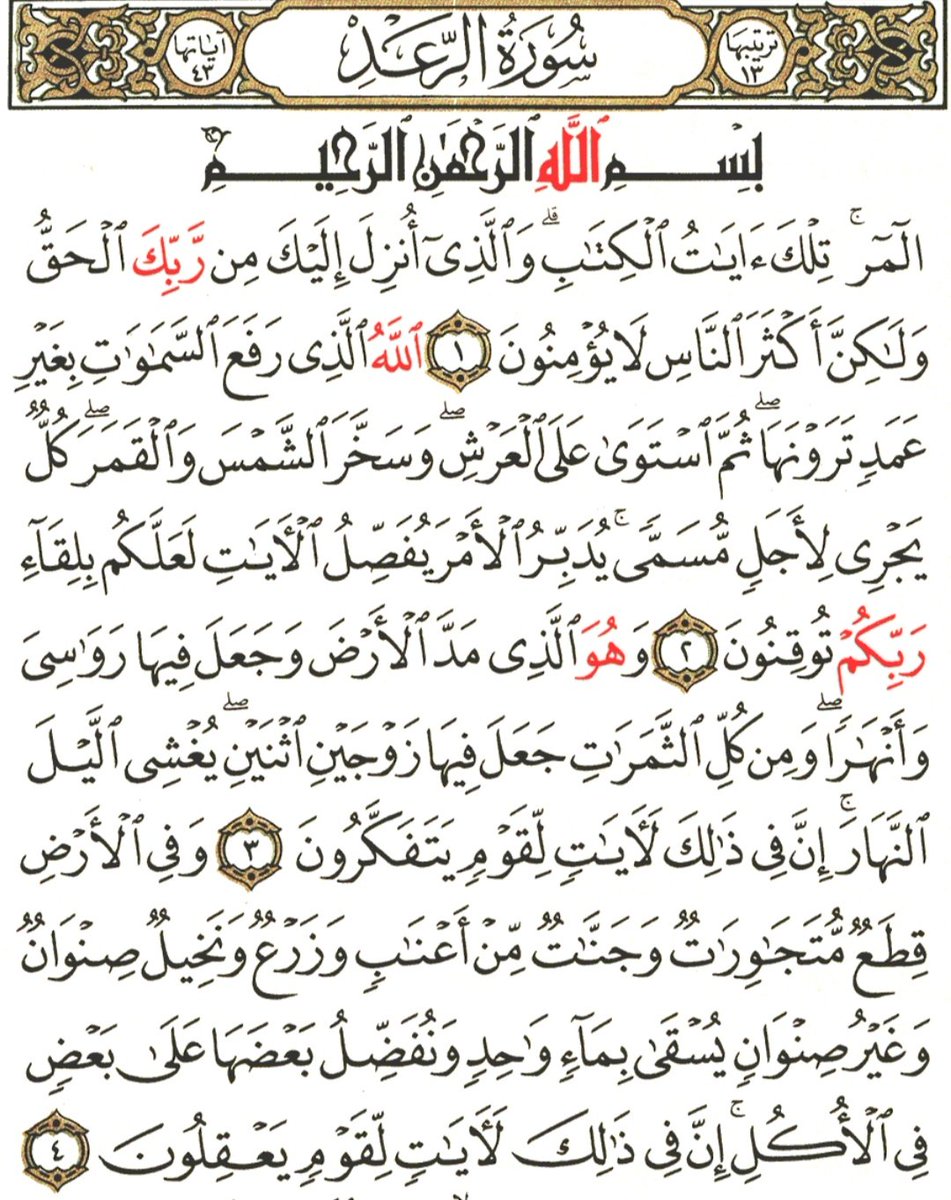 ترتيبها ١٣ سُورَةُ الرَّعْدِ آياتها ٤٣
بِسْمِ ٱللَّهِ ٱلرَّحْمَٰنِ ٱلرَّحِيمِ
الٓمٓرۚ تِلْكَ ءَايَٰتُ ٱلْكِتَٰبِۗ وَٱلَّذِىٓ أُنزِلَ إِلَيْكَ مِن رَّبِّكَ ٱلْحَقُّ
وَلَٰكِنَّ أَكْثَرَ ٱلنَّاسِ لَا يُؤْمِنُونَ ١ ٱللَّهُ ٱلَّذِى رَفَعَ ٱلسَّمَٰوَٰتِ بِغَيْرِ
عَمَدٍ تَرَوْنَهَاۖ ثُمَّ ٱسْتَوَىٰ عَلَى ٱلْعَرْشِۖ وَسَخَّرَ ٱلشَّمْسَ وَٱلْقَمَرَۖ كُلٌّ
يَجْرِى لِأَجَلٍ مُّسَمًّىۚ يُدَبِّرُ ٱلْأَمْرَ يُفَصِّلُ ٱلْأَيَٰتِ لَعَلَّكُم بِلِقَآءِ
رَبِّكُمْ تُوقِنُونَ ٢ وَهُوَ ٱلَّذِى مَدَّ ٱلْأَرْضَ وَجَعَلَ فِيهَا رَوَٰسِىَ
وَأَنْهَٰرًاۖ وَمِن كُلِّ ٱلثَّمَرَٰتِ جَعَلَ فِيهَا زَوْجَيْنِ ٱثْنَيْنِۖ يُغْشِى ٱلَّيْلَ
ٱلنَّهَارَۚ إِنَّ فِى ذَٰلِكَ لَأَيَٰتٍ لِّقَوْمٍ يَتَفَكَّرُونَ ٣ وَفِى ٱلْأَرْضِ
قِطَعٌ مُّتَجَٰوِرَٰتٌ وَجَنَّٰتٌ مِّنْ أَعْنَٰبٍ وَزَرْعٌ وَنَخِيلٌ صِنْوَانٌ
وَغَيْرُ صِنْوَانٍ يُسْقَىٰ بِمَآءٍ وَٰحِدٍ وَنُفَضِّلُ بَعْضَهَا عَلَىٰ بَعْضٍ
فِى ٱلْأُكُلِۚ إِنَّ فِى ذَٰلِكَ لَأَيَٰتٍ لِّقَوْمٍ يَعْقِلُونَ ٤